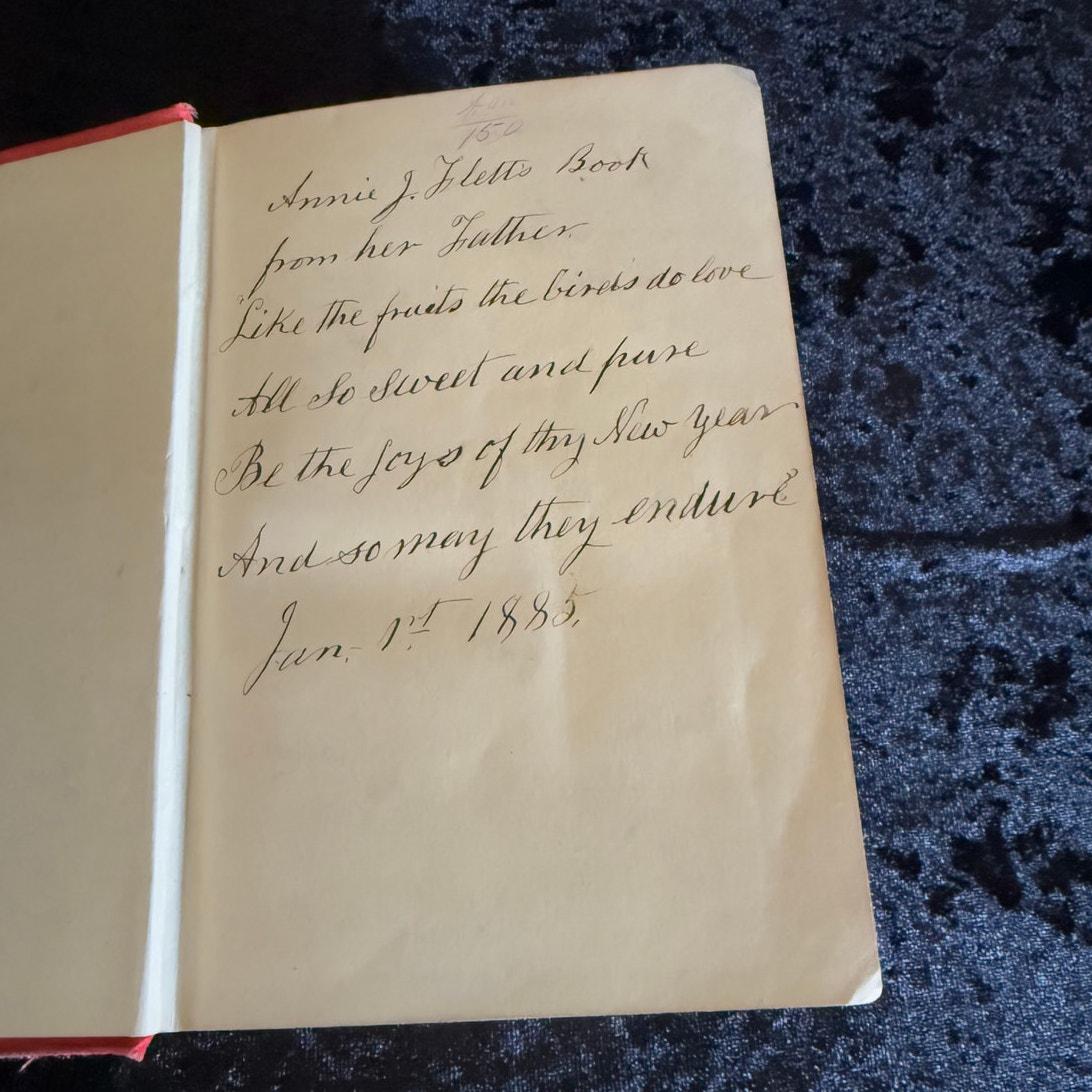 150
Annie J. Flett's Book
from her Father.
"Like the fruits the birds do love
All So sweet and pure
Be the Joys of thy New Year
And so may they endure"
Jan. 1st 1885.